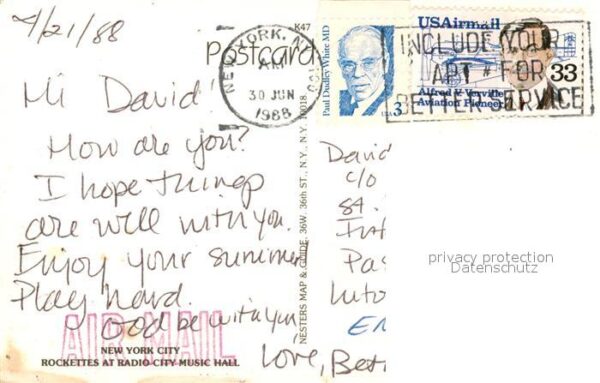 4/21/88
Hi David!
How are you?
I hope things
are well with you.
Enjoy your summer
Play hard.
God be with you,
Love, Bett
AIR MAIL
NEW YORK CITY
ROCKETTES AT RADIO CITY MUSIC HALL
K47
Postcard
NESTERS MAP & GUIDE, 36W. 36th ST., N.Y., N.Y. 10018
NEW YORK, N
AM
30 JUN
1988
Paul Dudley White MD
USA 3
USAirmail
33
Alfred V. Verville
Aviation Pioneer
INCLUDE YOUR
APT # FOR
BETTER SERVICE
David
c/o
84
Pas
privacy protection
Datenschutz